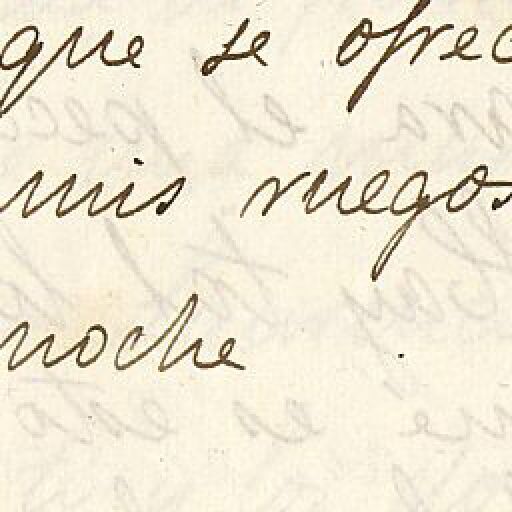 que se ofrec
mis ruegos
noche .